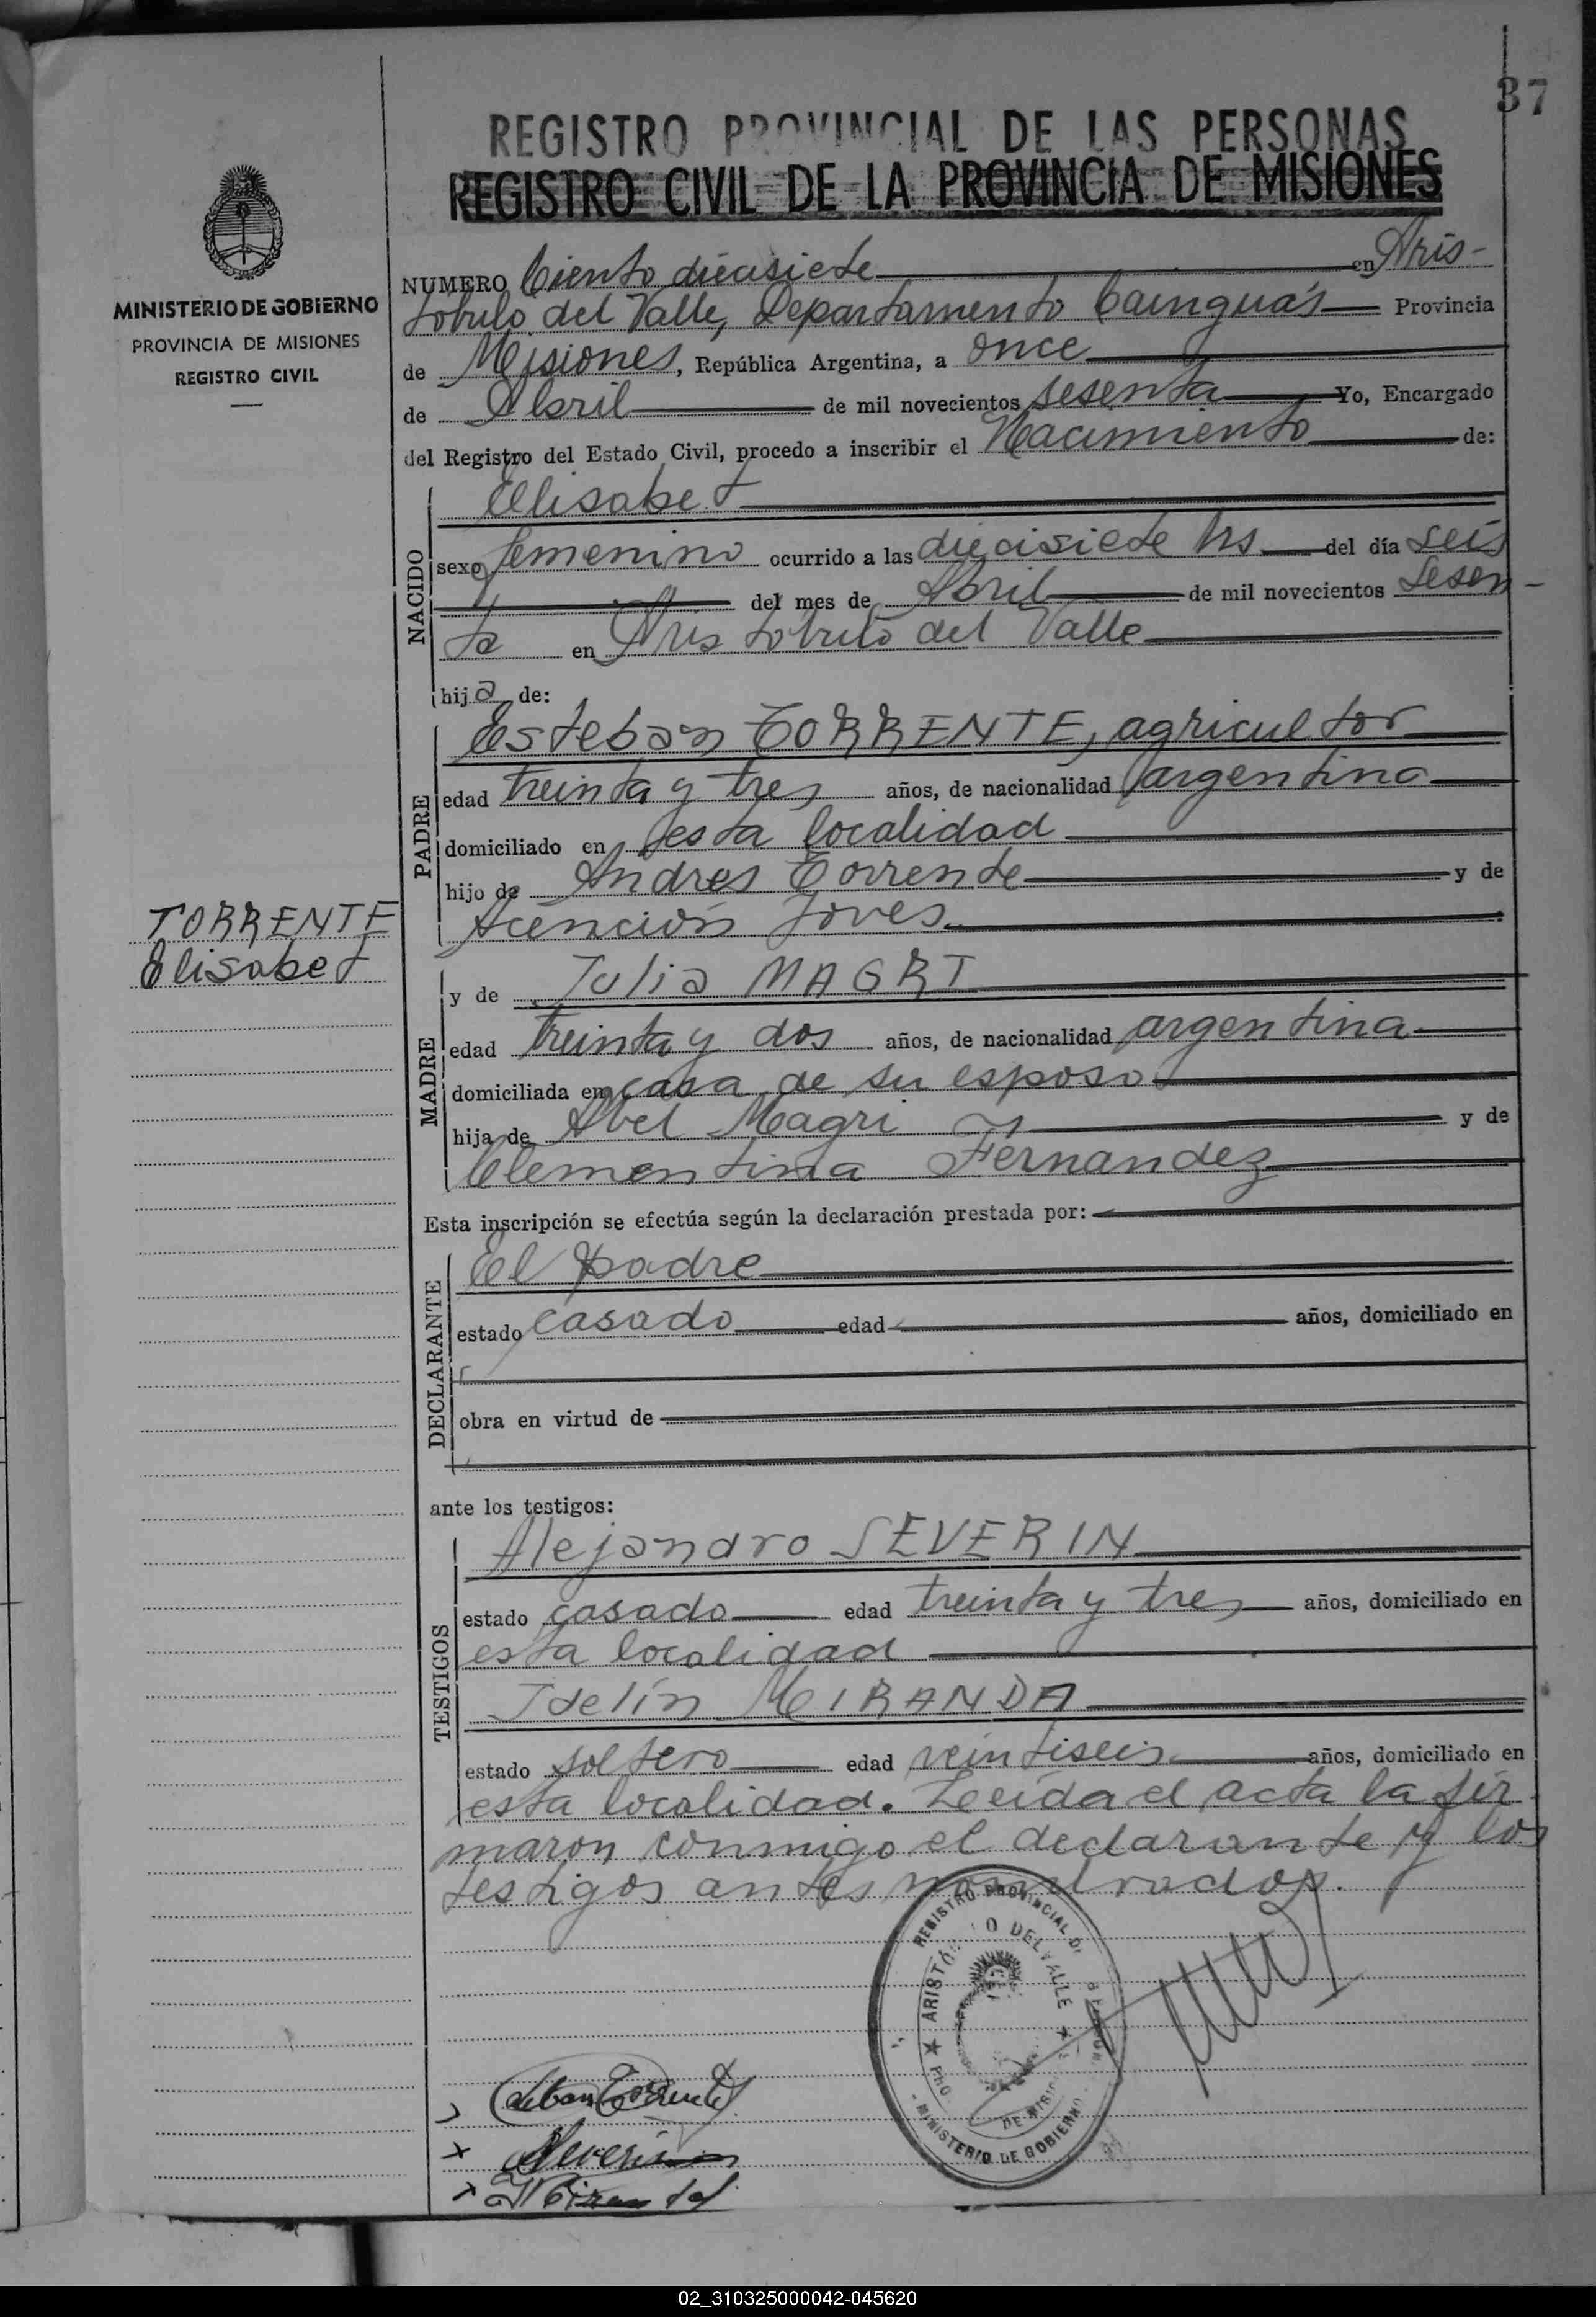 37
REGISTRO PROVINCIAL DE LAS PERSONAS
REGISTRO CIVIL DE LA PROVINCIA DE MISIONES
MINISTERIO DE GOBIERNO
PROVINCIA DE MISIONES
REGISTRO CIVIL
TORRENTE
Elisabet
NUMERO Ciento diecisiete en Aris-
tobulo del Valle, Departamento Cainguás Provincia
de Misiones, República Argentina, a once
de Abril de mil novecientos sesenta Yo, Encargado
del Registro del Estado Civil, procedo a inscribir el Nacimiento de:
NACIDO
Elisabet
sexo femenino ocurrido a las diecisiete hs del día seis
del mes de Abril de mil novecientos sesen-
ta en Aristobulo del Valle
hija de:
PADRE
Esteban TORRENTE, agricultor
edad treinta y tres años, de nacionalidad argentina
domiciliado en esta localidad
hijo de Andres Torrente y de
Acención Joves
MADRE
y de Julia MAGRI
edad treinta y dos años, de nacionalidad argentina
domiciliada en casa de su esposo
hija de Abel Magri y de
Clementina Fernandez
Esta inscripción se efectúa según la declaración prestada por:
DECLARANTE
El padre
estado casado edad años, domiciliado en
obra en virtud de
ante los testigos:
TESTIGOS
Alejandro SEVERIN
estado casado edad treinta y tres años, domiciliado en
esta localidad
Idelín MIRANDA
estado soltero edad veintiseis años, domiciliado en
esta localidad. Leída el acta la fir-
maron conmigo el declarante y los
testigos antes nombrados.
REGISTRO PROVINCIAL DE
ARISTÓBULO DEL VALLE
MINISTERIO DE GOBIERNO
02_310325000042-045620